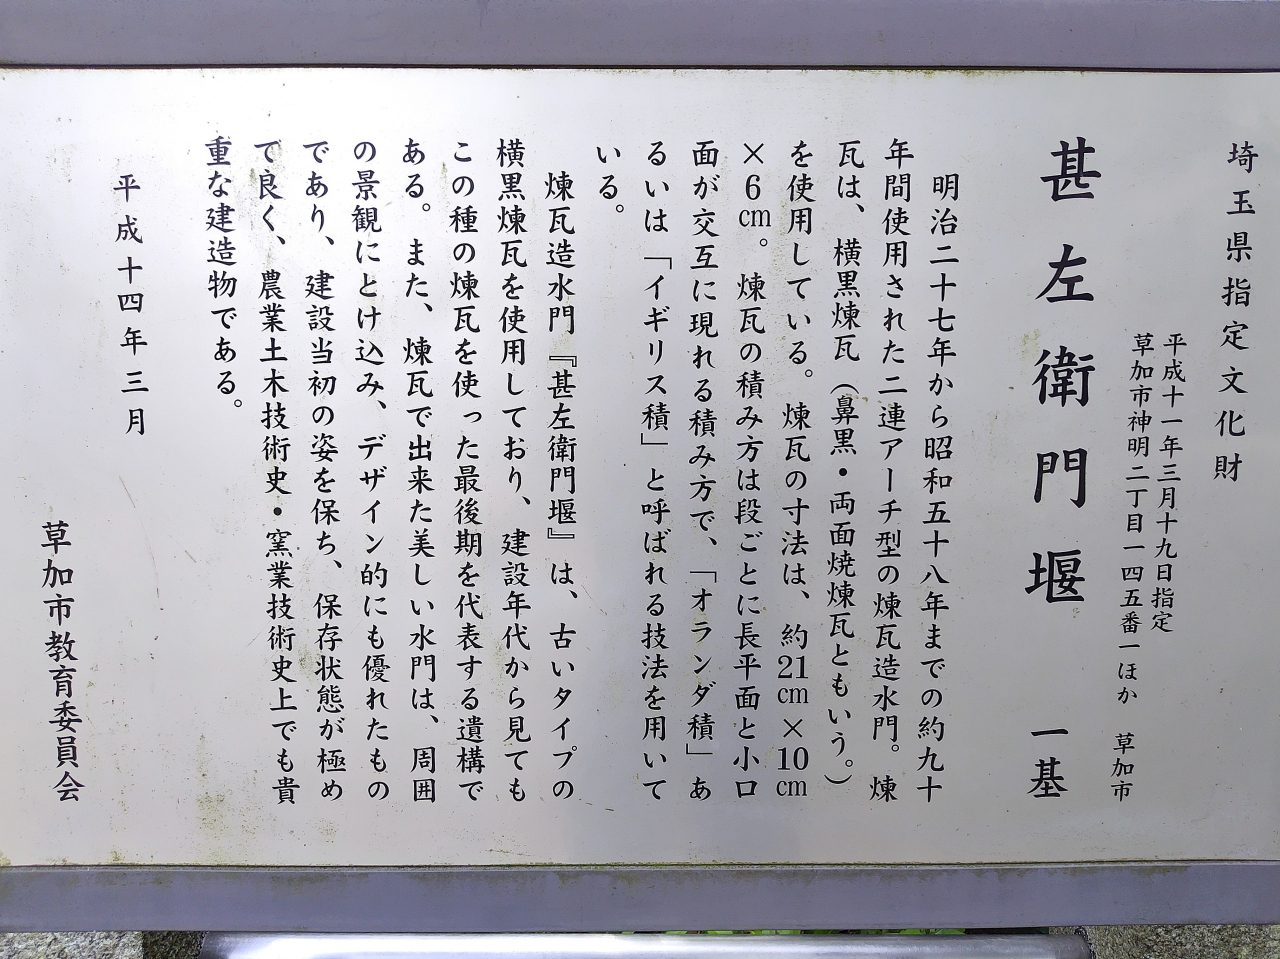 埼玉県指定文化財
平成十一年三月十九日指定
草加市神明二丁目一四五番一ほか 草加市
甚左衛門堰 一基
明治二十七年から昭和五十八年までの約九十
年間使用された二連アーチ型の煉瓦造水門。煉
瓦は、横黒煉瓦（鼻黒・両面焼煉瓦ともいう。）
を使用している。煉瓦の寸法は、約21㎝×10㎝
×6㎝。煉瓦の積み方は段ごとに長平面と小口
面が交互に現れる積み方で、「オランダ積」あ
るいは「イギリス積」と呼ばれる技法を用いて
いる。
煉瓦造水門『甚左衛門堰』は、古いタイプの
横黒煉瓦を使用しており、建設年代から見ても
この種の煉瓦を使った最後期を代表する遺構で
ある。また、煉瓦で出来た美しい水門は、周囲
の景観にとけ込み、デザイン的にも優れたもの
であり、建設当初の姿を保ち、保存状態が極め
て良く、農業土木技術史・窯業技術史上でも貴
重な建造物である。
平成十四年三月
草加市教育委員会